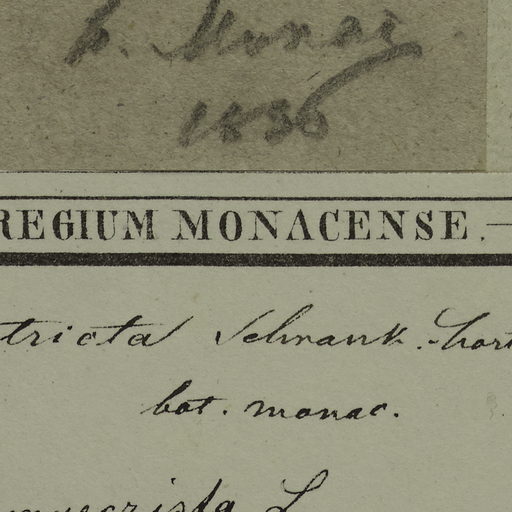 h. Monac.
1836
REGIUM MONACENSE.
tricta Schrank. hort
bot. monac.
crista L